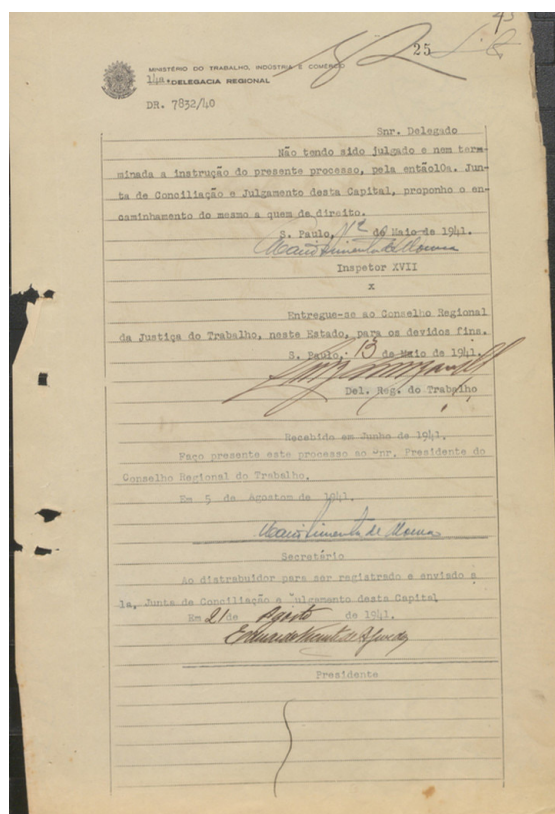 25
MINISTÉRIO DO TRABALHO, INDÚSTRIA E COMÉRCIO
14a. DELEGACIA REGIONAL
DR. 7832/40
Snr. Delegado
Não tendo sido julgado e nem term-
minada a instrução do presente processo, pela então10a. Jun-
ta de Conciliação e Julgamento desta Capital, proponho o en-
caminhamento do mesmo a quem de direito.
S. Paulo, 12 de Maio de 1941.
Inspetor XVII
x
Entregue-se ao Conselho Regional
da Justiça do Trabalho, neste Estado, para os devidos fins.
S. Paulo, 13 de Maio de 1941.
Del. Reg. do Trabalho
Recebido em Junho de 1941.
Faço presente este processo ao Snr. Presidente do
Conselho Regional do Trabalho.
Em 5 de Agostom de 1941.
Secretário
Ao distrabuidor para ser registrado e enviado a
1a, Junta de Conciliação e Julgamento desta Capital
Em 21 de Agosto de 1941.
Presidente